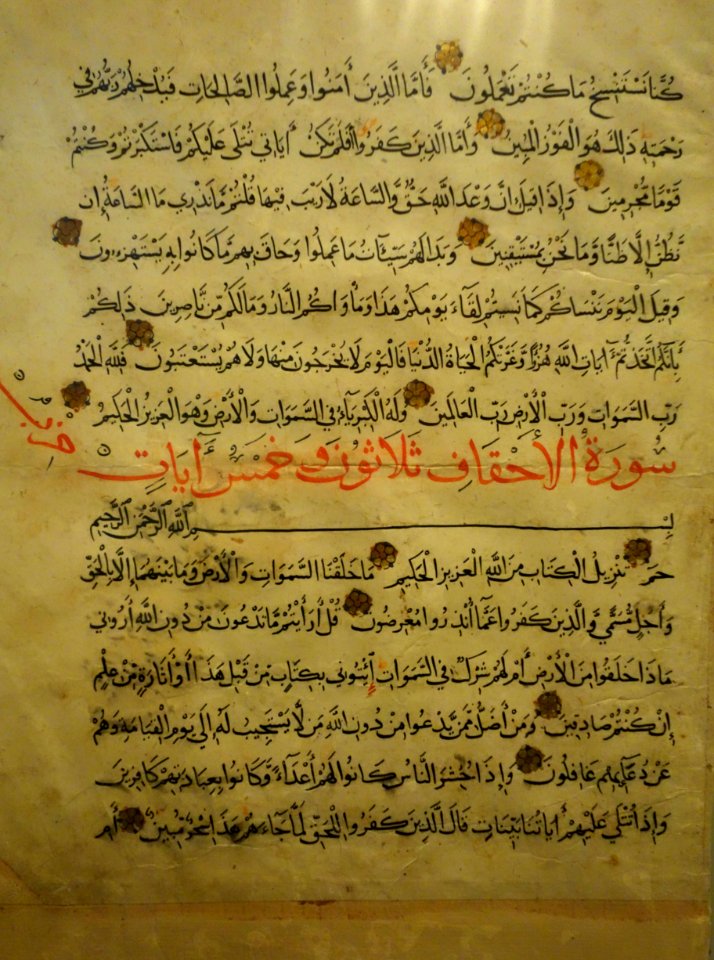 كُنَّا نَسْتَنْسِخُ مَا كُنْتُمْ تَعْمَلُونَ فَأَمَّا الَّذِينَ أٰمَنُوا وَعَمِلُوا الصَّالِحَاتِ فَيُدْخِلُهُمْ رَبُّهُمْ فِي
رَحْمَتِهِ ذَلِكَ هُوَ الْفَوْزُ الْمُبِينُ وَأَمَّا الَّذِينَ كَفَرُوا أَفَلَمْ تَكُنْ أٰيَاتِي تُتْلَى عَلَيْكُمْ فَاسْتَكْبَرْتُمْ وَكُنْتُمْ
قَوْمًا مُجْرِمِينَ وَإِذَا قِيلَ إِنَّ وَعْدَ اللَّهِ حَقٌّ وَالسَّاعَةُ لَا رَيْبَ فِيهَا قُلْتُمْ مَا نَدْرِي مَا السَّاعَةُ إِنْ
نَّظُنُّ إِلَّا ظَنًّا وَمَا نَحْنُ بِمُسْتَيْقِنِينَ وَبَدَا لَهُمْ سَيِّئَاتُ مَا عَمِلُوا وَحَاقَ بِهِمْ مَّا كَانُوا بِهِ يَسْتَهْزِءُونَ
وَقِيلَ الْيَوْمَ نَنْسَاكُمْ كَمَا نَسِيتُمْ لِقَآءَ يَوْمِكُمْ هَذَا وَمَأْوَاكُمُ النَّارُ وَمَا لَكُمْ مِّنْ نَّاصِرِينَ ذَلِكُمْ
بِأَنَّكُمُ اتَّخَذْتُمْ أٰيَاتِ اللَّهِ هُزُوًا وَّغَرَّتْكُمُ الْحَيَاةُ الدُّنْيَا فَالْيَوْمَ لَا يُخْرَجُونَ مِنْهَا وَلَا هُمْ يُسْتَعْتَبُونَ فَلِلَّهِ الْحَمْدُ
رَبِّ السَّمَوَاتِ وَرَبِّ الْأَرْضِ رَبِّ الْعَالَمِينَ وَلَهُ الْكِبْرِيَآءُ فِي السَّمَوَاتِ وَالْأَرْضِ وَهُوَ الْعَزِيزُ الْحَكِيمُ
سُورَةُ الْأَحْقَافِ ثَلَاثُونَ وَ خَمْسُ أٰيَاتٍ
بِسْمِ اللَّهِ الرَّحْمٰنِ الرَّحِيمِ
حم تَنْزِيلُ الْكِتَابِ مِنَ اللَّهِ الْعَزِيزِ الْحَكِيمِ مَا خَلَقْنَا السَّمَوَاتِ وَالْأَرْضَ وَمَا بَيْنَهُمَا إِلَّا بِالْحَقِّ
وَأَجَلٍ مُّسَمًّى وَالَّذِينَ كَفَرُوا عَمَّا أُنْذِرُوا مُعْرِضُونَ قُلْ أَرَأَيْتُمْ مَّا تَدْعُونَ مِنْ دُونِ اللَّهِ أَرُونِي
مَاذَا خَلَقُوا مِنَ الْأَرْضِ أَمْ لَهُمْ شِرْكٌ فِي السَّمَوَاتِ إِئْتُونِي بِكِتَابٍ مِّنْ قَبْلِ هَذَا أَوْ أَثَارَةٍ مِّنْ عِلْمٍ
إِنْ كُنْتُمْ صَادِقِينَ وَمَنْ أَضَلُّ مِمَّنْ يَّدْعُوا مِنْ دُونِ اللَّهِ مَنْ لَّا يَسْتَجِيبُ لَهُ إِلَى يَوْمِ الْقِيَامَةِ وَهُمْ
عَنْ دُعَآئِهِمْ غَافِلُونَ وَإِذَا حُشِرَ النَّاسُ كَانُوا لَهُمْ أَعْدَآءً وَّكَانُوا بِعِبَادَتِهِمْ كَافِرِينَ
وَإِذَا تُتْلَى عَلَيْهِمْ أٰيَاتُنَا بَيِّنَاتٍ قَالَ الَّذِينَ كَفَرُوا لِلْحَقِّ لَمَّا جَآءَهُمْ هَذَا سِحْرٌ مُّبِينٌ أَمْ